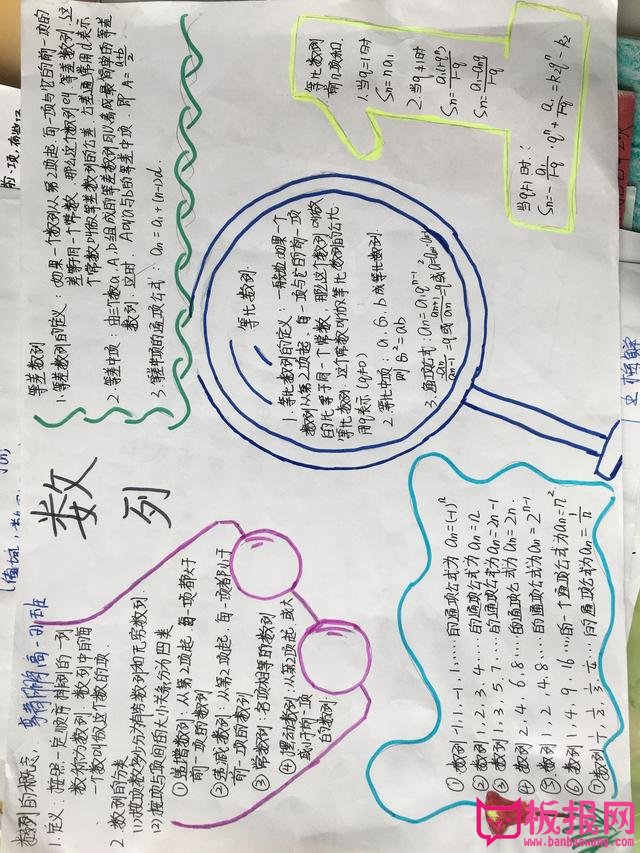 数列的概念
李都帅 高一21班
1. 定义：按照一定顺序排列的一列
数称为数列，数列中的每
一个数叫做这个数列的项.
2. 数列的分类
(1) 按项数多少分为有穷数列和无穷数列.
(2) 按项与项间的大小关系分为四类
①递增数列：从第2项起，每一项都大于
前一项的数列
②递减数列：从第2项起，每一项都小于
前一项的数列
③常数列：各项相等的数列
④摆动数列：从第2项起，或大
或小于前一项
的数列
数
列
等差数列
1. 等差数列的定义：如果一个数列从第2项起每一项与它的前一项的
差等于同一个常数，那么这个数列叫等差数列.这
个常数叫做等差数列的公差.公差通常用d表示
2. 等差中项：由三个数a、A、b组成的等差数列可以看成最简单的等差
数列.这时，A叫a与b的等差中项.即A=(a+b)/2
3. 等差中项的通项公式：an=a1+(n-1)d.
①数列-1,1,-1,1,…的通项公式为an=(-1)^n
②数列1,2,3,4…的通项公式为an=n
③数列1,3,5,7…的通项公式为an=2n-1
④数列2,4,6,8…的通项公式为an=2n.
⑤数列1,2,4,8…的通项公式为an=2^(n-1)
⑥数列1,4,9,16…的一个通项公式为an=n².
⑦数列1,1/2,1/3,1/4…的通项公式为an=1/n
等比数列
1. 等比数列的定义：一般地,如果一个
数列从第2项起，每一项与它的前一项
的比等于同一个常数，那么这个数列叫做
等比数列.这个常数叫做等比数列的公比.
用q表示(q≠0)
2. 等比中项：a,G,b成等比数列.
则G²=ab
3. 通项公式：an=a1q^(n-1)
等比数列
前n项和.
1.当q=1时
Sn=na1
2.当q≠1时
Sn=a1(1-q^n)/(1-q)
Sn=(a1-anq)/(1-q)
当q≠1时：
板报网
www.banbaowang.com